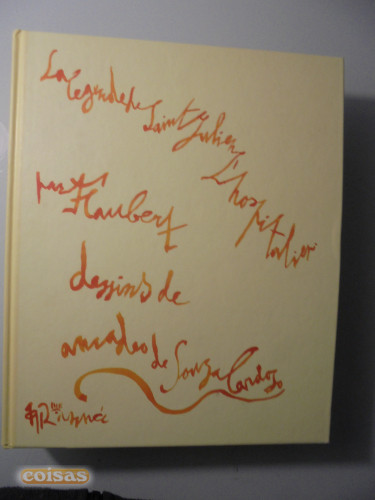 La légende de Saint Julien L'hospitalier
par Flaubert
dessins de
amadeo de Souza Cardoso
coisas